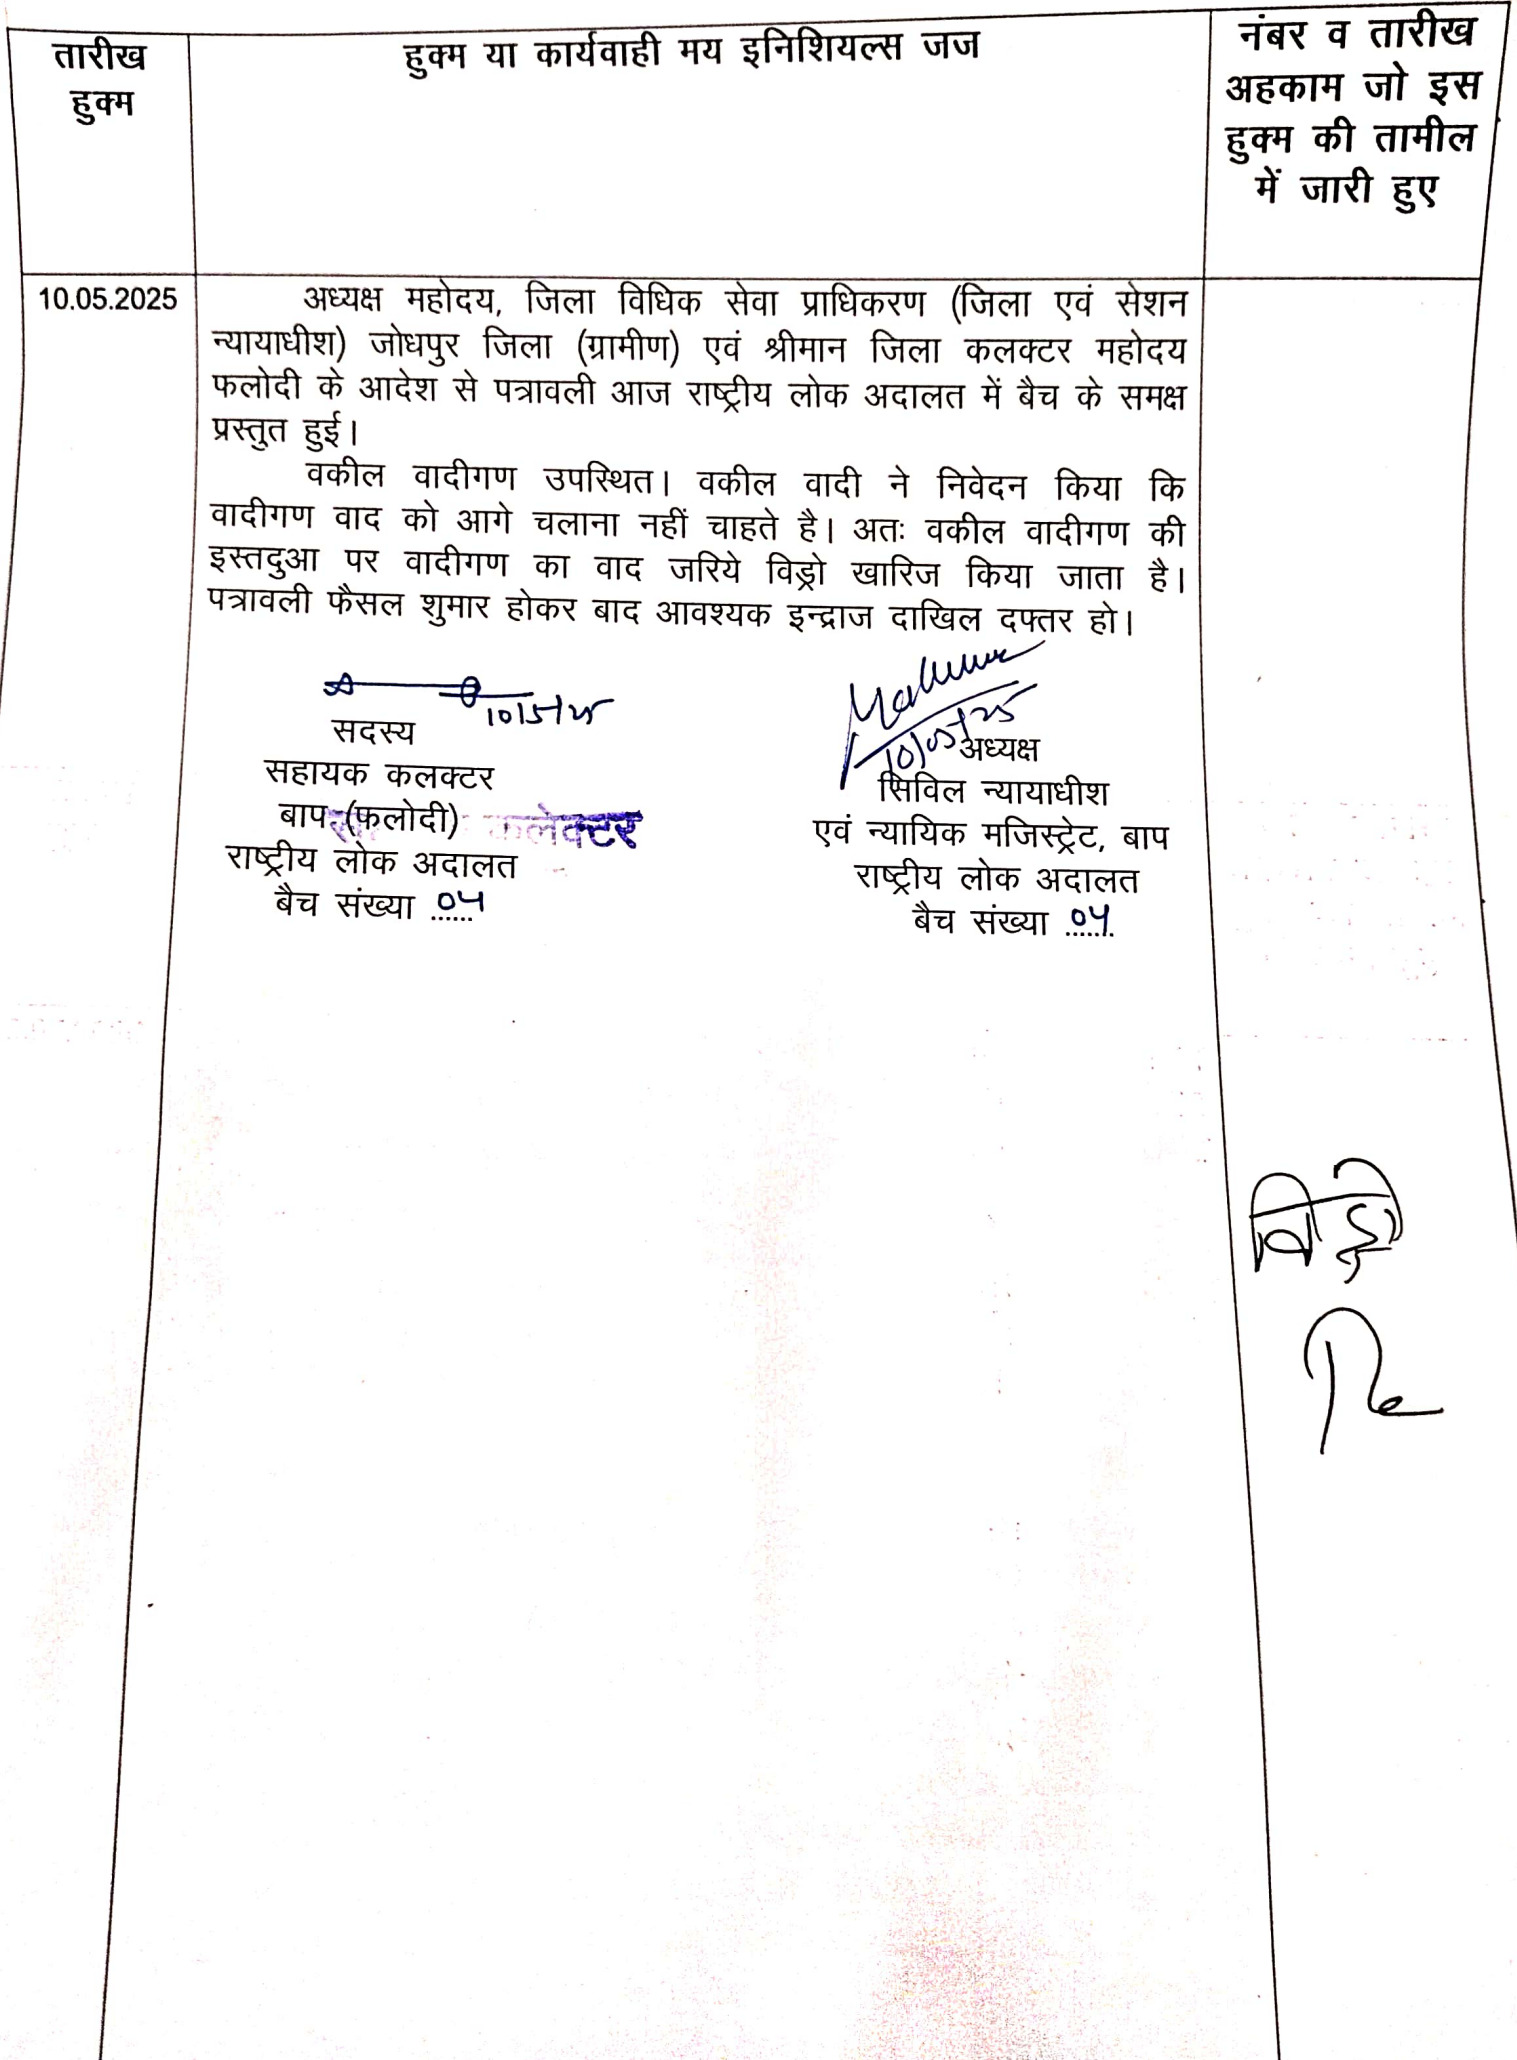 तारीख
हुक्म
हुक्म या कार्यवाही मय इनिशियल्स जज
नंबर व तारीख
अहकाम जो इस
हुक्म की तामील
में जारी हुए
10.05.2025
अध्यक्ष महोदय, जिला विधिक सेवा प्राधिकरण (जिला एवं सेशन
न्यायाधीश) जोधपुर जिला (ग्रामीण) एवं श्रीमान जिला कलक्टर महोदय
फलोदी के आदेश से पत्रावली आज राष्ट्रीय लोक अदालत में बैच के समक्ष
प्रस्तुत हुई।
वकील वादीगण उपस्थित। वकील वादी ने निवेदन किया कि
वादीगण वाद को आगे चलाना नहीं चाहते है। अतः वकील वादीगण की
इस्तदुआ पर वादीगण का वाद जरिये विड्रो खारिज किया जाता है।
पत्रावली फैसल शुमार होकर बाद आवश्यक इन्द्राज दाखिल दफ्तर हो।
10/5/25
सदस्य
सहायक कलक्टर
बाप (फलोदी)
कलेक्टर
राष्ट्रीय लोक अदालत
बैच संख्या 04
10/05/25
अध्यक्ष
सिविल न्यायाधीश
एवं न्यायिक मजिस्ट्रेट, बाप
राष्ट्रीय लोक अदालत
बैच संख्या 04
विड्रो